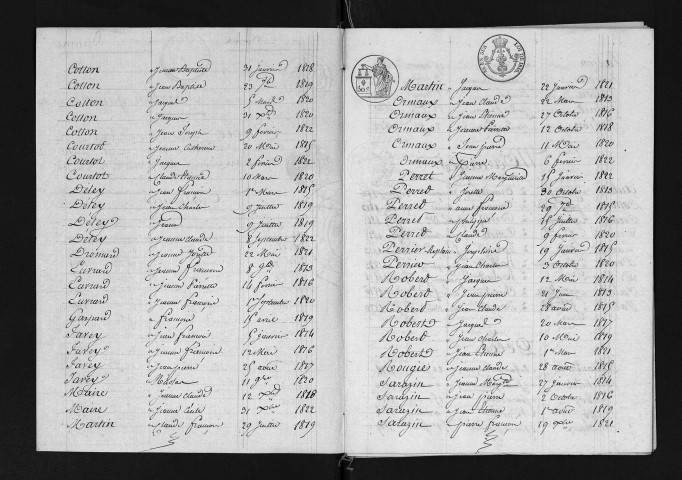 Cotton Jeanne Baptiste 31 Janvier 1818
Cotton Jean Baptiste 23 1819
Cotton Jacques 5 1820
Cotton Jacques 31 Xbre 1820
Cotton Jean Joseph 9 février 1822
Courtot Jeanne Catherine 20 Mai 1815
Courtot Jacques 2 février 1822
Courtot Claude Pierre 10 Mars 1820
Détey Jean François 1er Mars 1815
Détey Jean Charles 9 Juillet 1819
Détey 9 Juillet 1819
Détey Jeanne Claude 8 Septembre 1822
Drémard Jeanne 22 Mai 1821
Euvrard Jeanne Françoise 8 9bre 1813
Euvrard Jeanne Pierrette 14 février 1816
Euvrard Jeanne Françoise 1er Septembre 1820
Gaspard François 15 avril 1819
Favey Jean François 5 Janvier 1814
Favey Jeanne Françoise 12 Mai 1816
Favey Jean pierre 25 août 1817
Favey 11 9bre 1820
Maire Jeanne Claude 12 Xbre 1818
Maire Jeanne 31 Xbre 1822
Martin Claude François 29 Juillet 1819
Martin Jacques 22 Janvier 1821
Ormaux Jean Claude 22 Mars 1813
Ormaux Jean Etienne 27 Octobre 1816
Ormaux Jeanne 12 Octobre 1818
Ormaux Jean pierre 11 Mai 1820
Ormaux Pierre 6 février 1822
Perret Jeanne Marguerite 15 Janvier 1822
Perret Josette 30 Octobre 1813
Perret anne Françoise 1815
Perret 15 Juillet 1816
Perret Claude 9 février 1820
Perrier Josephine 19 Janvier 1815
Perrier Jean Charles 3 Octobre 1820
Robert Jacques 12 Mai 1814
Robert Jean pierre 21 Juin 1813
Robert Jean Claude 28 août 1815
Robert Jacques 20 Mars 1817
Robert Jean Charles 10 Mai 1819
Robert Jean Etienne 1er Mars 1821
Rougie Jeanne Claude 28 août 1815
Sarazin Jeanne 27 Janvier 1814
Sarazin Jean pierre 2 Octobre 1816
Sarazin Jean Etienne 1er août 1819
Sarazin pierre François 19 Xbre 1821